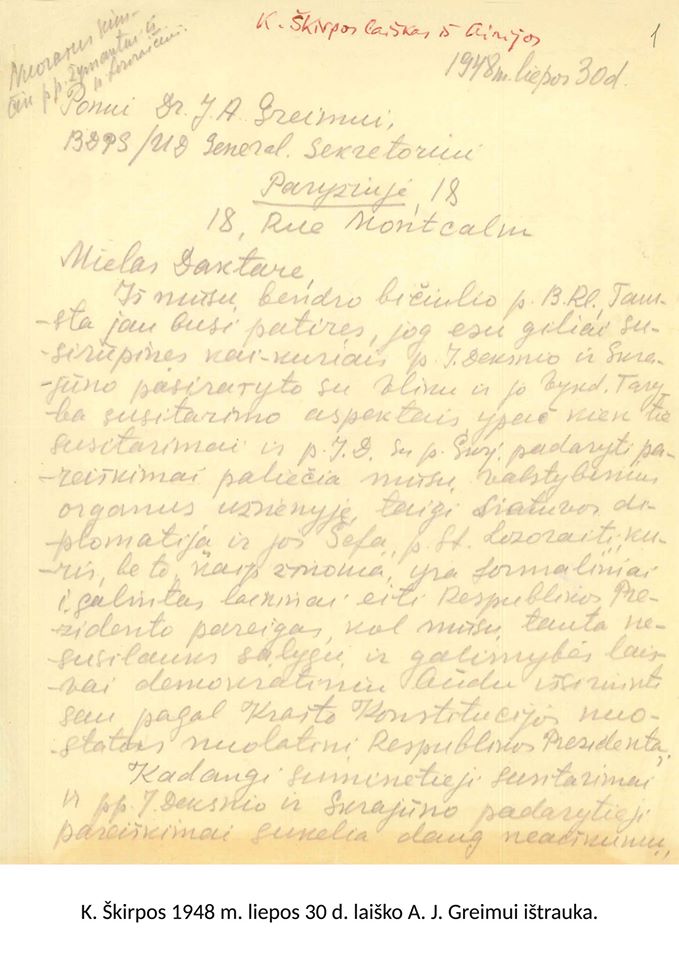 K. Škirpos laiškas iš Airijos
1
Nuorašus siun-
čiu pp. Žymantui ir
Lozoraičiui.
1948 m. liepos 30 d.
Ponui Dr. J. A. Greimui,
BDPS/UD General. Sekretoriui
Paryžiuje, 18
18, Rue Montcalm
Mielas Daktare,
Iš mūsų bendro bičiulio p. B. Rl, Tam-
-sta jau busi patires, jog esu giliai su-
-sirūpines kai-kuriais p. J. Deksnio ir Skra-
-jūno pasirašyto su Vliku ir jo Vykd. Tary
-ba susitarimo aspektais, ypač kiek tie
susitarimai ir p. J. D. su p. Skrj. padaryti pa-
-reiškimai paliečia mūsų valstybinius
organus užsienyje, taigi Lietuvos di-
-plomatija ir jos Šefa, p. St. Lozoraiti, ku-
-ris, be to, kaip žinoma, yra formaliniai
įgalintas laikinai eiti Respublikos Pre-
-zidento pareigas, kol mūsų tauta ne-
-susilauks sąlygų ir galimybės lais-
-vai demokratiniu būdu išsirinkti
sau pagal Krašto Konstitucijos nuo-
-status nuolatinį Respublikos Prezidentą.
Kadangi suminėtieji susitarimai
ir pp. J. Deksnio ir Skrajūno padarytieji
pareiškimai sukelia daug neaiškumų,
K. Škirpos 1948 m. liepos 30 d. laiško A. J. Greimui ištrauka.